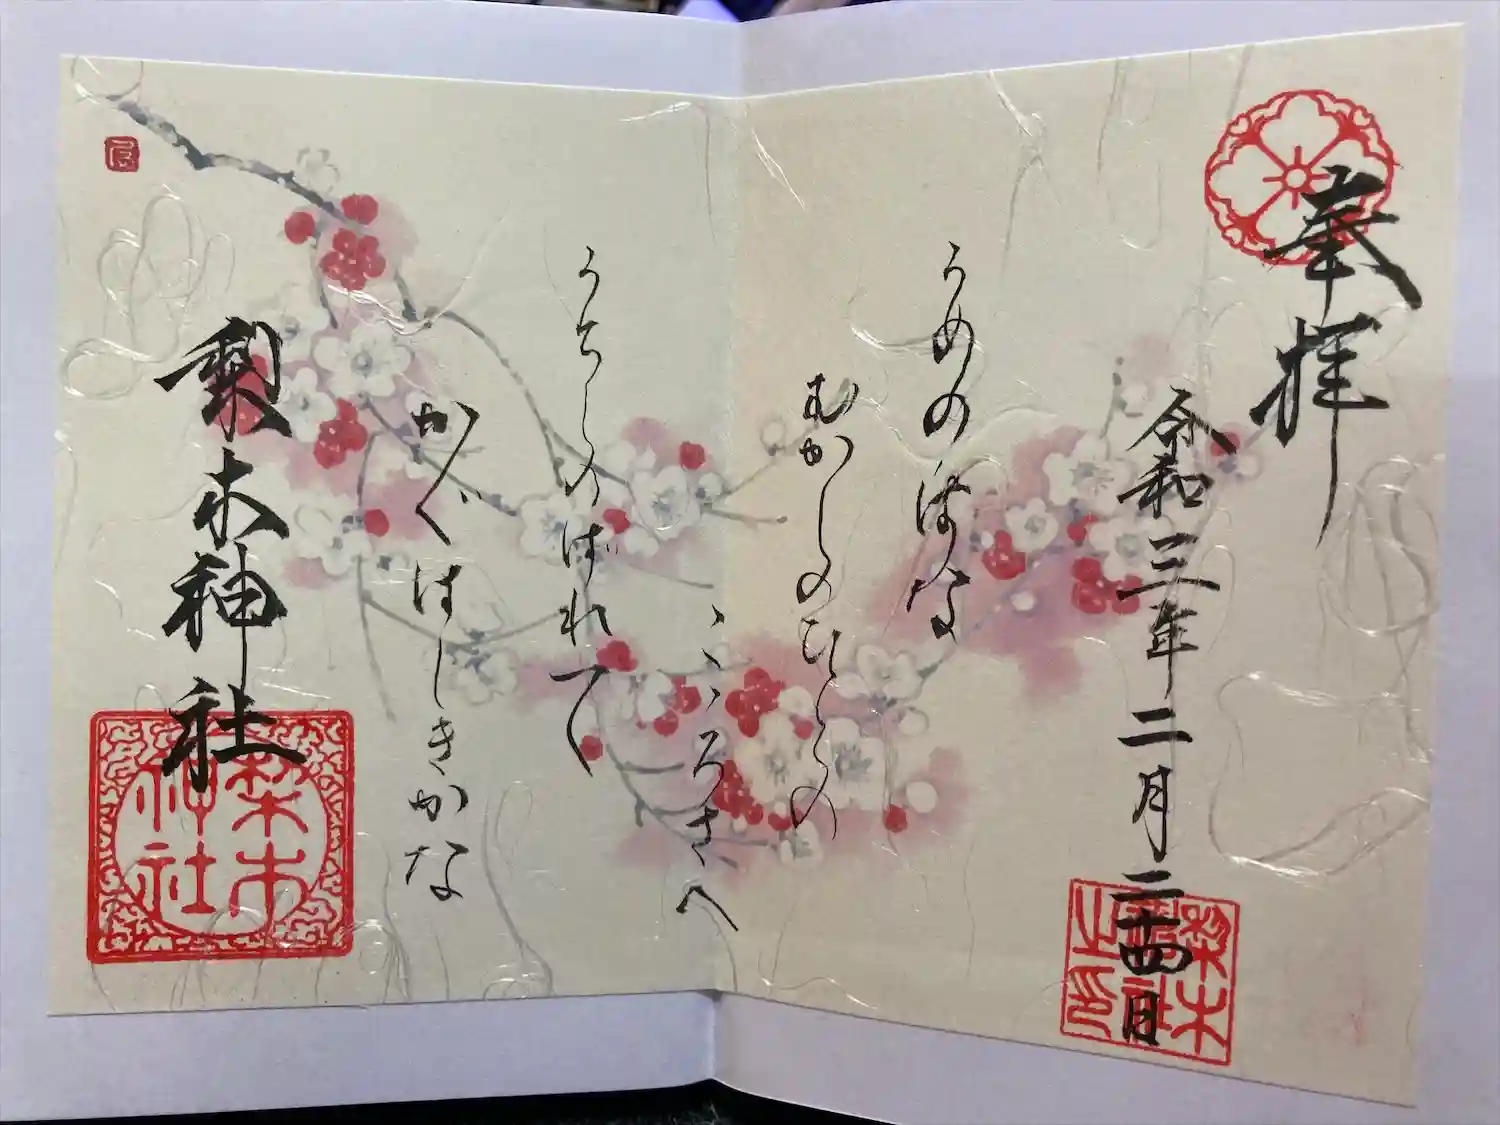 奉拝
令和三年二月二十四日
梨木神社之印
うめのはな
むかしのひとの
こゝろさへ
うちしのばれて
かぐはしきかな
梨木神社
梨木神社